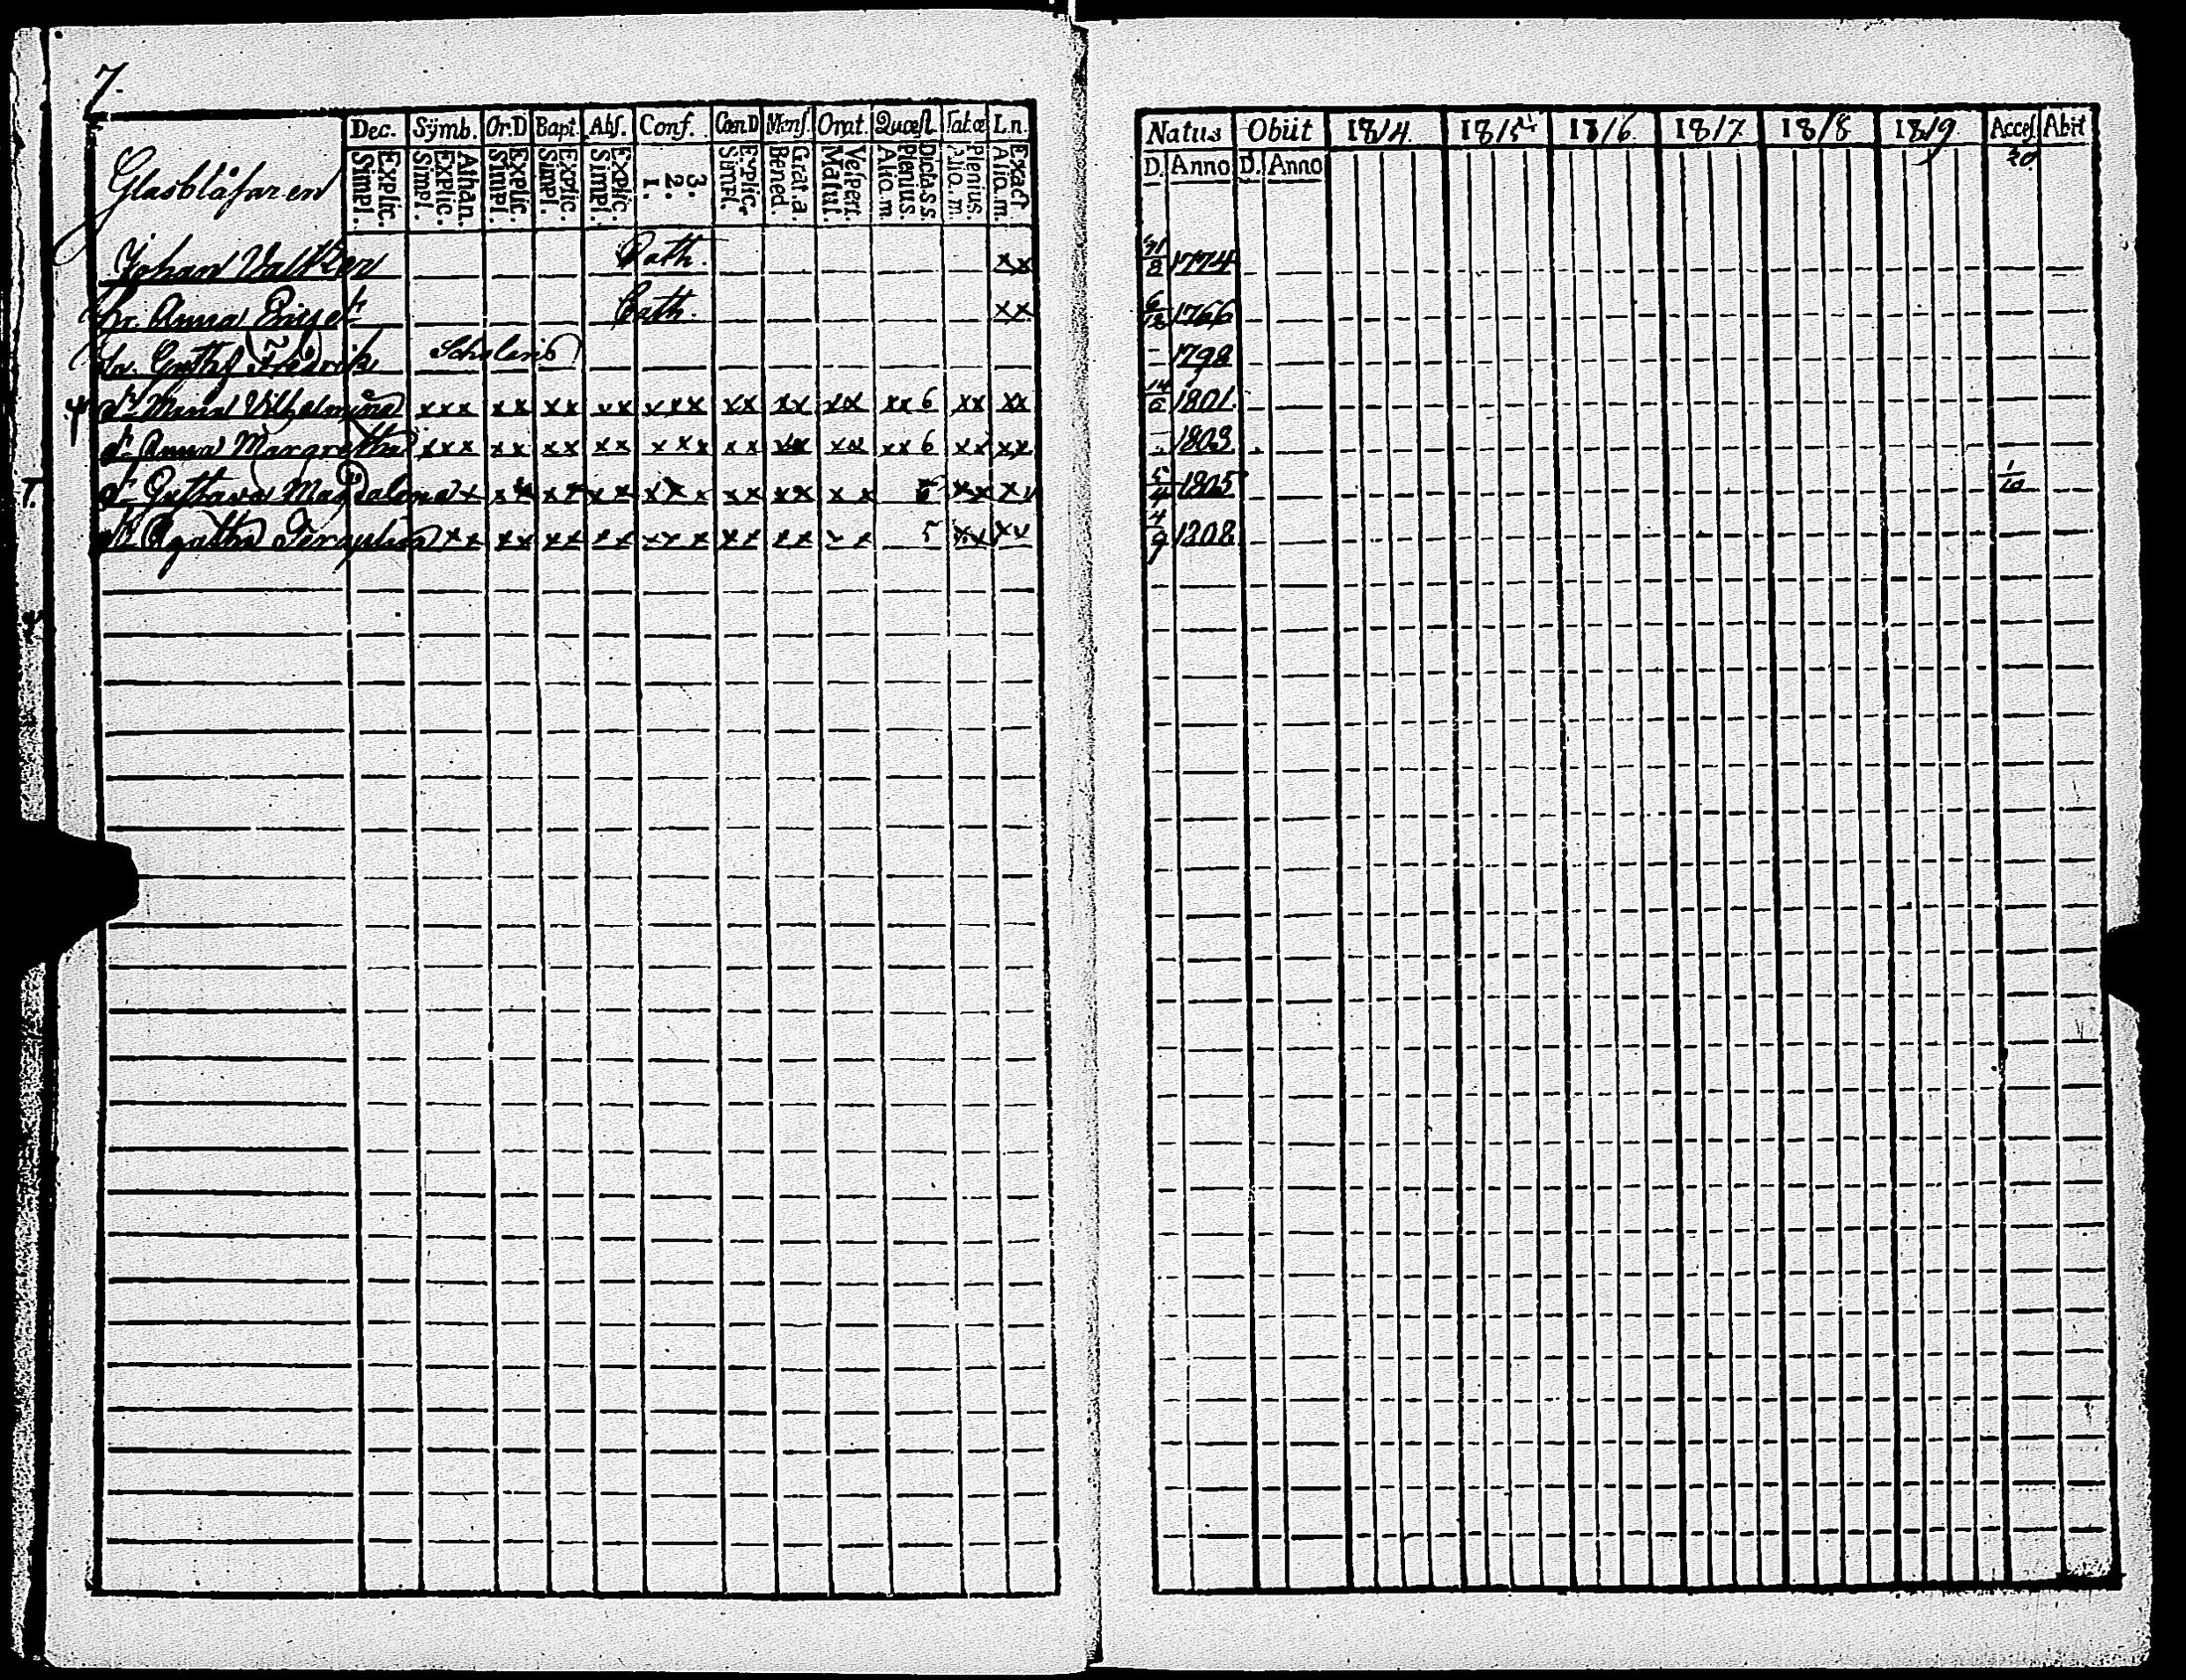 7.
Dec. Sÿmb. Or.D Bapt. Abſ. Conf. Cœn.D Menſ. Orat. Quœſt. Tabœ L.n.
Glasblåsaren
Explic. Simpl. Athan. Explic. Simpl. Explic. Simpl. Explic. Simpl. Explic. Simpl. 3. 2. 1. Explic. Simpl. Grat. a. Bened. Veſpert. Matut. Dicta s.s. Plenius. Aliq. m. Plenius. Aliq. m. Exact Aliq. m.
Johan Cath. xx
Hr. Anna Cath. xx
Sn. Fredrik Scholaris
Dr Maria Vilhelmina xxx xx xx xx xxx xx xx xx xx 6 xx xx
Dr Anna Margretha xxx xx xx xx xxx xx xx xx xx 6 xx xx
Dr Gustava Magdalena x xx xx xx xxx xx xx xx 5 xx xx
Agatha xx xx xx xx xxx xx xx xx 5 xx xx
T.
Natus Obiit 1814. 1815 1816. 1817. 1818 1819 Acceſ Abit
D. Anno D. Anno
1774
6/12 1766
- 1798
14/6 1801.
- 1803
5/4 1805 1/10
4/9 1808